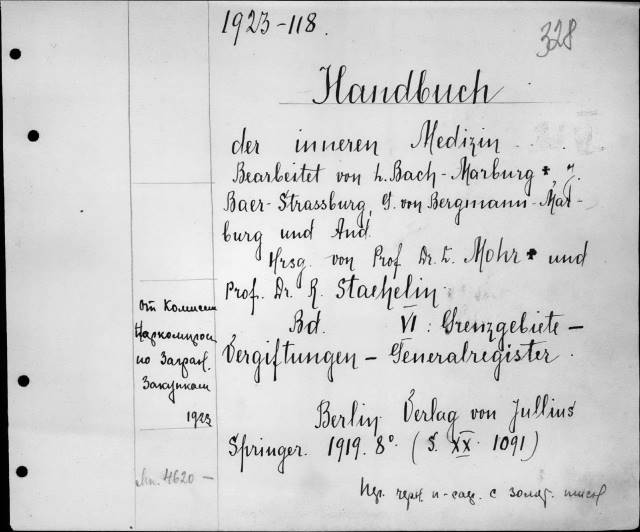 1923-118.
328
Handbuch
der inneren Medizin . . .
Bearbeitet von L. Bach-Marburg +, J.
Baer-Strassburg, G. von Bergmann-Mar-
burg und And.
Hrsg. von Prof Dr. L. Mohr + und
Prof. Dr. R. Staehelin.
Bd. VI: Grenzgebiete –
Vergiftungen – Generalregister.
Berlin, Verlag von Jullius
Springer. 1919. 8° (S. XX. 1091)
От Комисси
Наркомпрос
по Загран.
Закупкам
1923
4620 –
Пер. черн. с золот.